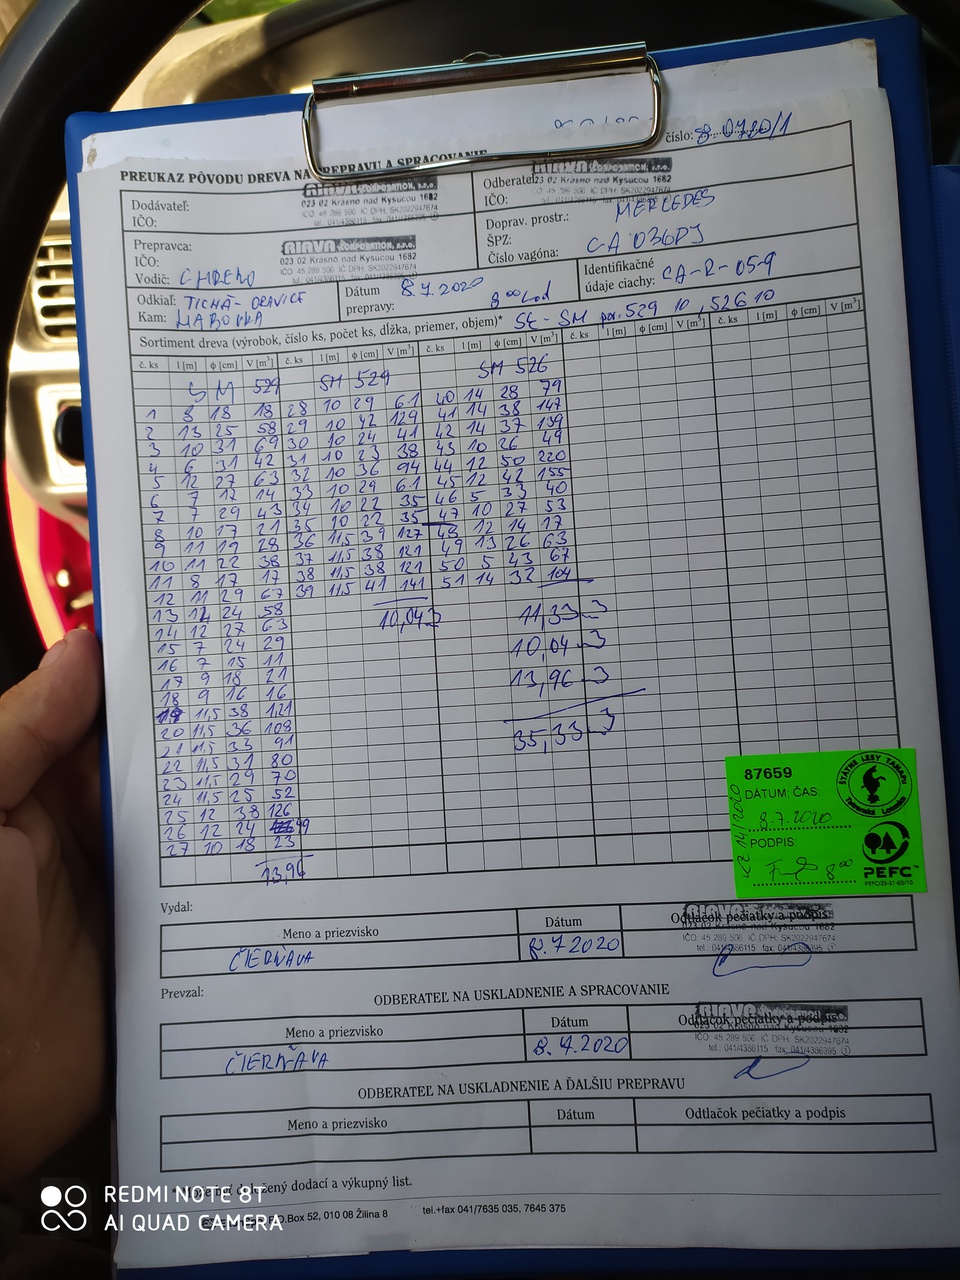 číslo: 8.0720/1
PREUKAZ PÔVODU DREVA NA PREPRAVU A SPRACOVANIE
Dodávateľ:
IČO:
CORPORATION, s.r.o.
023 02 Krásno nad Kysucou 1682
IČO: 45 289 506 IČ DPH: SK2022947674
Odberateľ:
IČO:
CORPORATION, s.r.o.
023 02 Krásno nad Kysucou 1682
IČO: 45 289 506 IČ DPH: SK2022947674
Prepravca:
IČO:
Vodič:
RIAVA CORPORATION, s.r.o.
023 02 Krásno nad Kysucou 1682
IČO: 45 289 506 IČ DPH: SK2022947674
Doprav. prostr.: MERCEDES
ŠPZ:
Číslo vagóna: CA 036PJ
Odkiaľ: TICHÁ-ORAVICE
Kam: HABOVKA
Dátum
prepravy: 8.7.2020
8⁰⁰ hod
Identifikačné
údaje ciachy: CA-R-05-9
Sortiment dreva (výrobok, číslo ks, počet ks, dĺžka, priemer, objem)* SK-SM por. 529 10, 526 10
č. ks l [m] ϕ [cm] V [m³] č. ks l [m] ϕ [cm] V [m³] č. ks l [m] ϕ [cm] V [m³] č. ks l [m] ϕ [cm] V [m³] č. ks l [m] ϕ [cm] V [m³]
SM 529 SM 529 SM 526
1 8 18 18 28 10 29 61 40 14 28 79
2 13 25 58 29 10 42 129 41 14 38 147
3 10 31 69 30 10 24 41 42 14 37 139
4 6 31 42 31 10 23 38 43 10 26 49
5 12 27 63 32 10 36 94 44 12 50 220
6 7 17 14 33 10 29 61 45 12 42 155
7 7 29 43 34 10 22 35 46 5 33 40
8 10 17 21 35 10 22 35 47 10 27 53
9 11 19 28 36 11,5 39 127 48 12 14 17
10 11 22 38 37 11,5 38 121 49 13 26 63
11 8 17 17 38 11,5 38 121 50 5 43 67
12 11 29 67 39 11,5 41 141 51 14 32 104
13 14 24 58 10,04 m3 11,33 m3
14 12 27 63
15 7 24 29 10,04 m3
16 7 15 11
17 9 18 21 13,96 m3
18 9 16 16
19 11,5 38 121
20 11,5 36 108 35,33 m3
21 11,5 33 91
22 11,5 31 80
23 11,5 29 70
24 11,5 25 52
25 12 38 126
26 12 24 49
27 10 18 23
13,96
87659
DÁTUM, ČAS:
8.7.2020
PODPIS:
8⁰⁰
ŠTÁTNE LESY TANAPU
Tatranská Lomnica
PEFC™
PEFC/23-21-03/10
Vydal:
Meno a priezvisko Dátum Odtlačok pečiatky a podpis
ČIERŇAVA 8.7.2020
023 02 Krásno nad Kysucou 1682
IČO: 45 289 506 IČ DPH: SK2022947674
tel.: 041/4386115 fax: 041/4386395
Prevzal:
ODBERATEĽ NA USKLADNENIE A SPRACOVANIE
Meno a priezvisko Dátum Odtlačok pečiatky a podpis
ČIERŇAVA 8.7.2020
023 02 Krásno nad Kysucou 1682
IČO: 45 289 506 IČ DPH: SK2022947674
tel.: 041/4386115 fax: 041/4386395
ODBERATEĽ NA USKLADNENIE A ĎALŠIU PREPRAVU
Meno a priezvisko Dátum Odtlačok pečiatky a podpis
* Môže byť doložený dodací a výkupný list.
P.O.Box 52, 010 08 Žilina 8 tel.+fax 041/7635 035, 7645 375
REDMI NOTE 8T
AI QUAD CAMERA